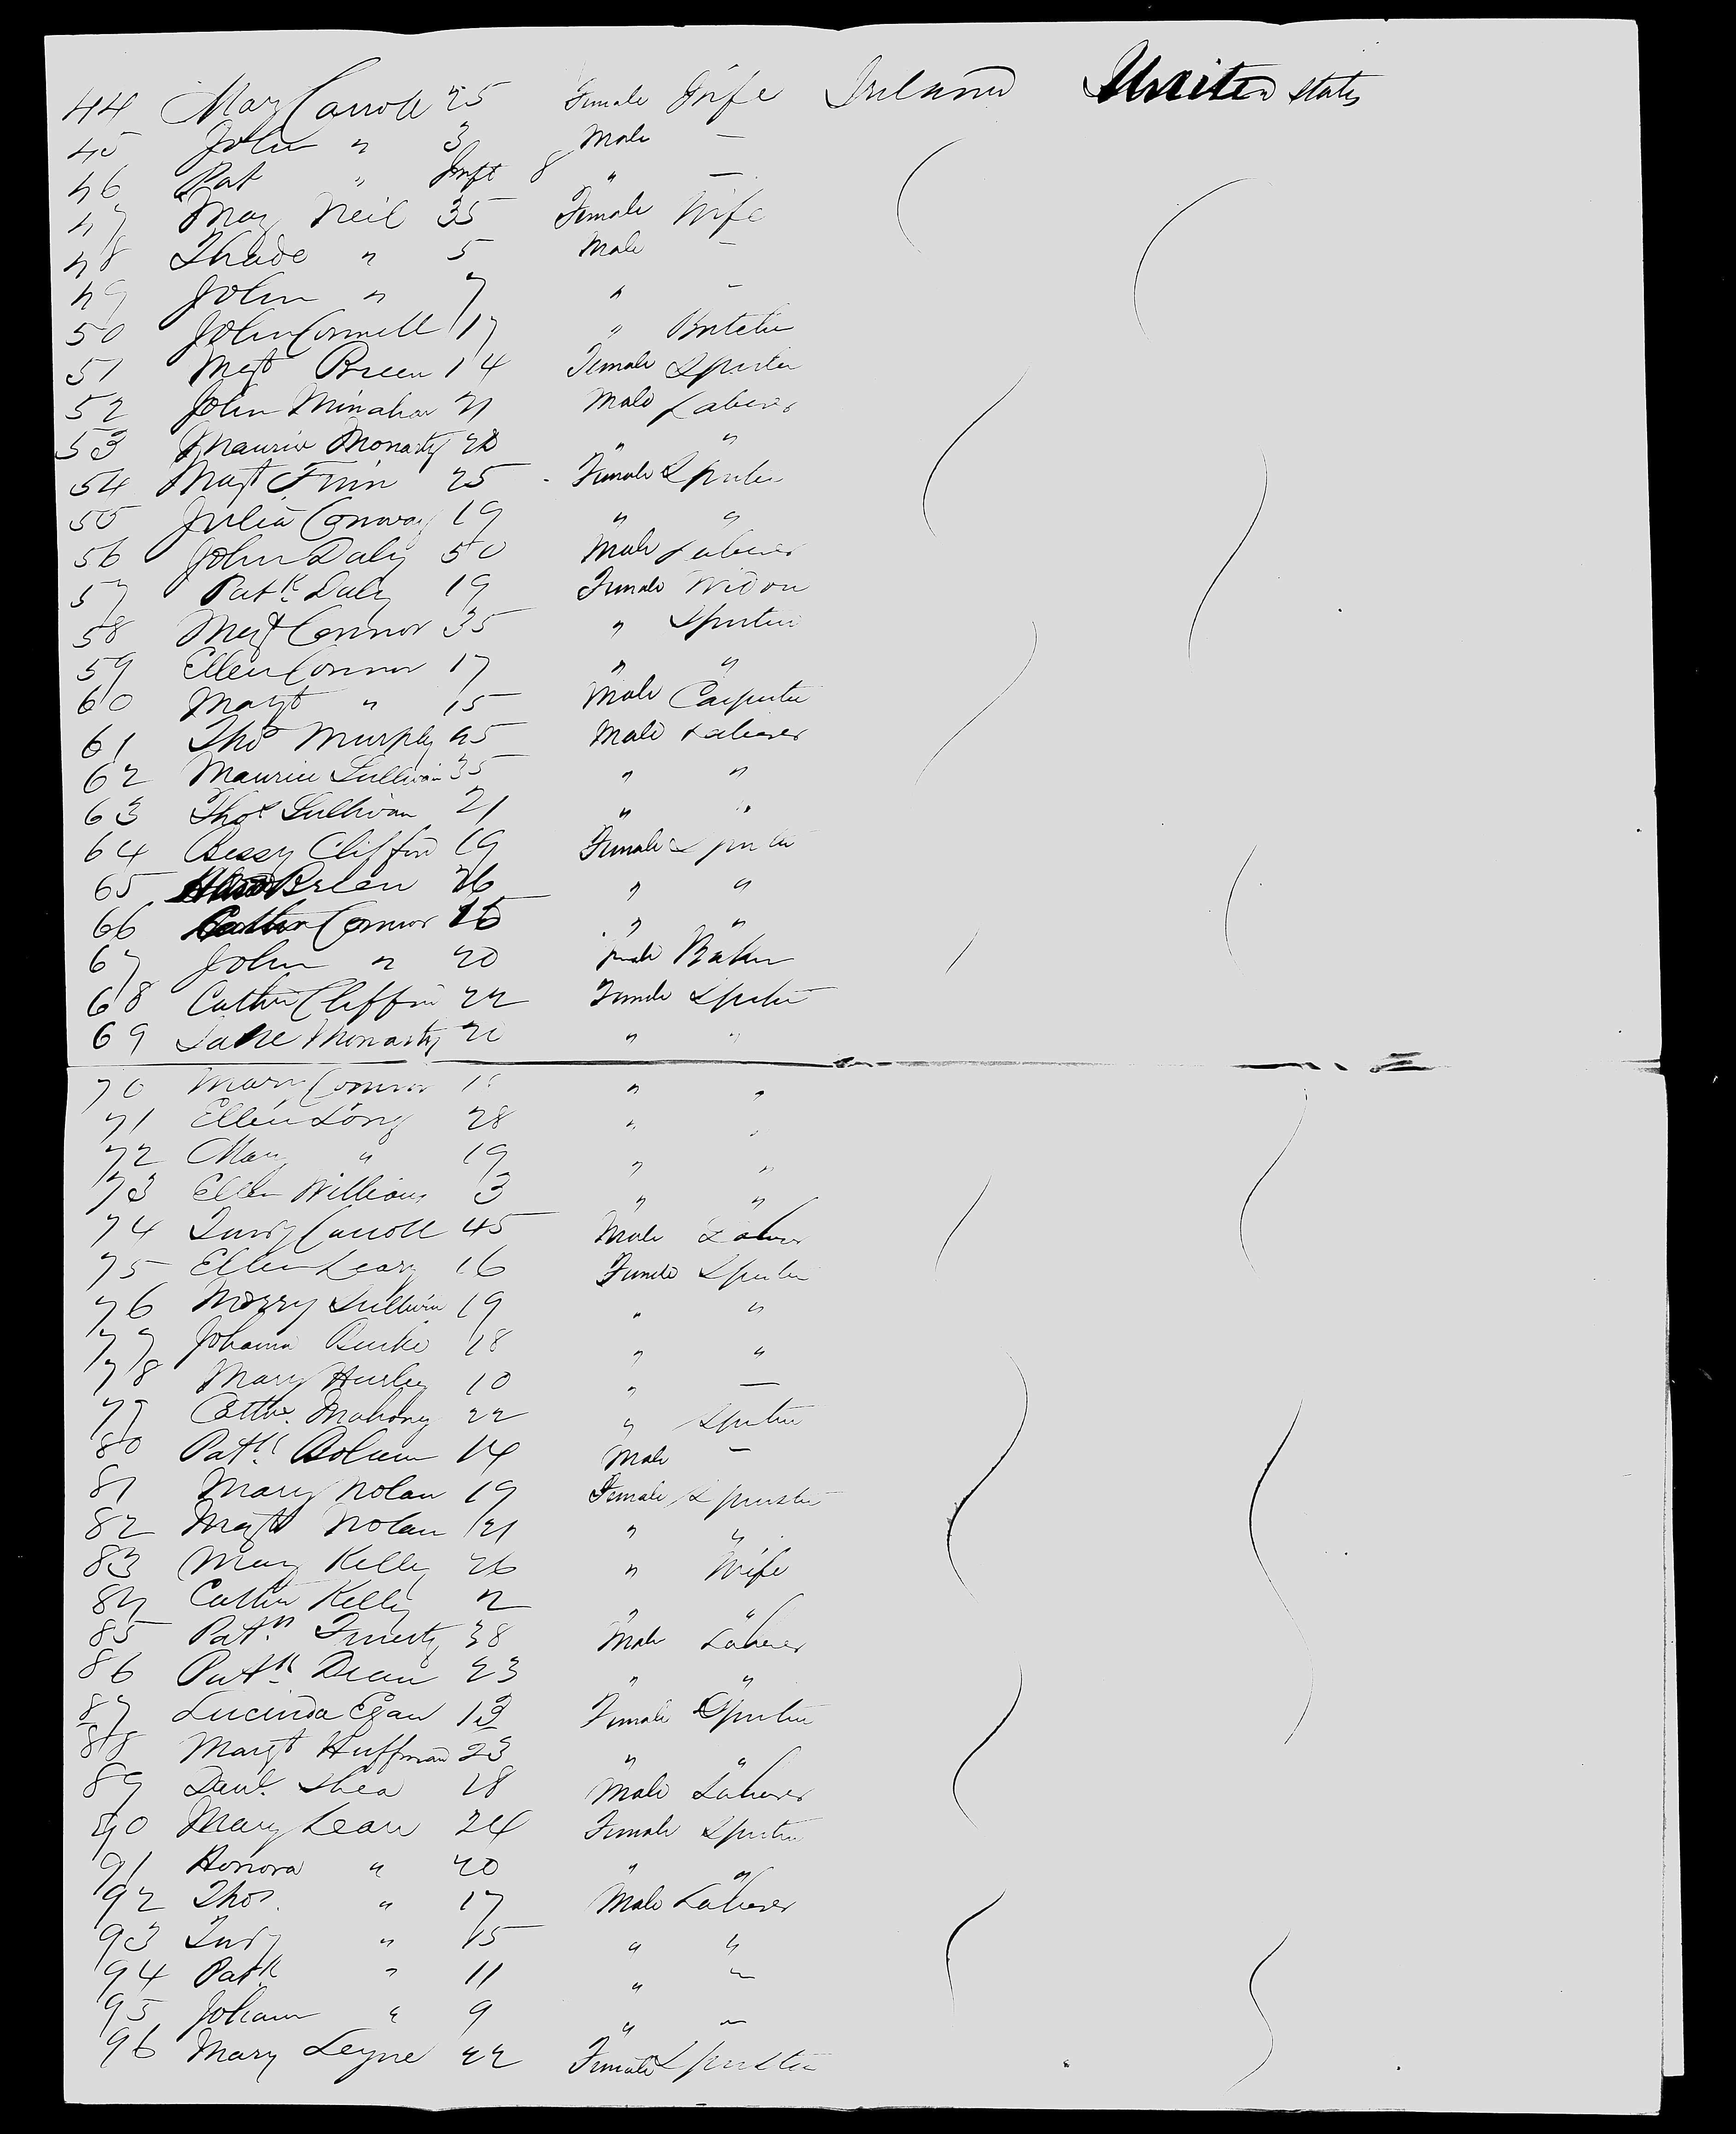 44 Mary Carroll 25 Female Wife Ireland United States
45 John " 3 Male —
46 Pat " Inft 8 " —
47 Mary Neil 35 Female Wife
48 Thade " 5 Male —
49 John " 7 " —
50 John Connell 17 " Butcher
51 Mgt Breen 14 Female Spinster
52 John Minahan 21 Male Laborer
53 Maurice Monarty 28 " "
54 Magt Finn 25 Female Spinster
55 Julia Conway 19 " "
56 John Daly 50 Male Laborer
57 Patk Daly 19 Female Widow
58 Mgt Connor 35 " Spinster
59 Ellen Connor 17 " "
60 Margt " 15 Male Carpenter
61 Thos Murphy 45 Male Laborer
62 Maurice Sullivan 35 " "
63 Thos Sullivan 21 " "
64 Bessy Cliffor 19 Female Spinster
65 Brien 26 " "
66 Cathn Connor 16 " "
67 John " 20 Male Baker
68 Cathn Cliffor 22 Female Spinster
69 Jane Monarty 20 " "
70 Mary Connor " "
71 Ellen Long 28 " "
72 Mary " 19 " "
73 Ellen Williams 3 " "
74 Carroll 45 Male Laborer
75 Ellen Leary 16 Female Spinster
76 Sullivan 19 " "
77 Johanna Burke 18 " "
78 Mary Hurley 10 " —
79 Cathe. Mahony 22 " Spinster
80 Patk 14 Male —
81 Mary Nolan 19 Female Spinster
82 Magt Nolan 21 " "
83 Mary Kelly 26 " Wife
84 Cathn Kelly 2 " "
85 Patk 38 Male Laborer
86 Patk Dean 23 " "
87 Lucinda Egan 13 Female Spinster
88 Margt Huffman 23 " "
89 Danl. Shea 28 Male Laborer
90 Mary Leary 24 Female Spinster
91 Honora " 20 " "
92 Thos. " 17 Male Laborer
93 " 15 " "
94 Patk " 11 " —
95 Johann " 9 " —
96 Mary Leyne 22 Female Spinster